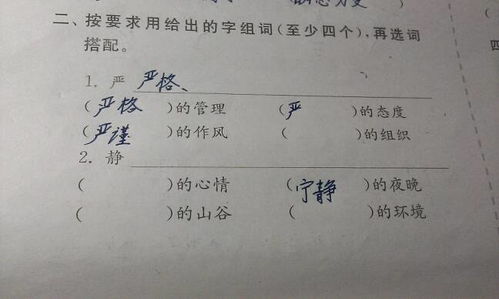 二、按要求用给出的字组词(至少四个),再选词
搭配。
1. 严 严格、
(严格)的管理 (严 )的态度
(严谨)的作风 ( )的组织
2. 静
( )的心情 (宁静)的夜晚
( )的山谷 ( )的环境